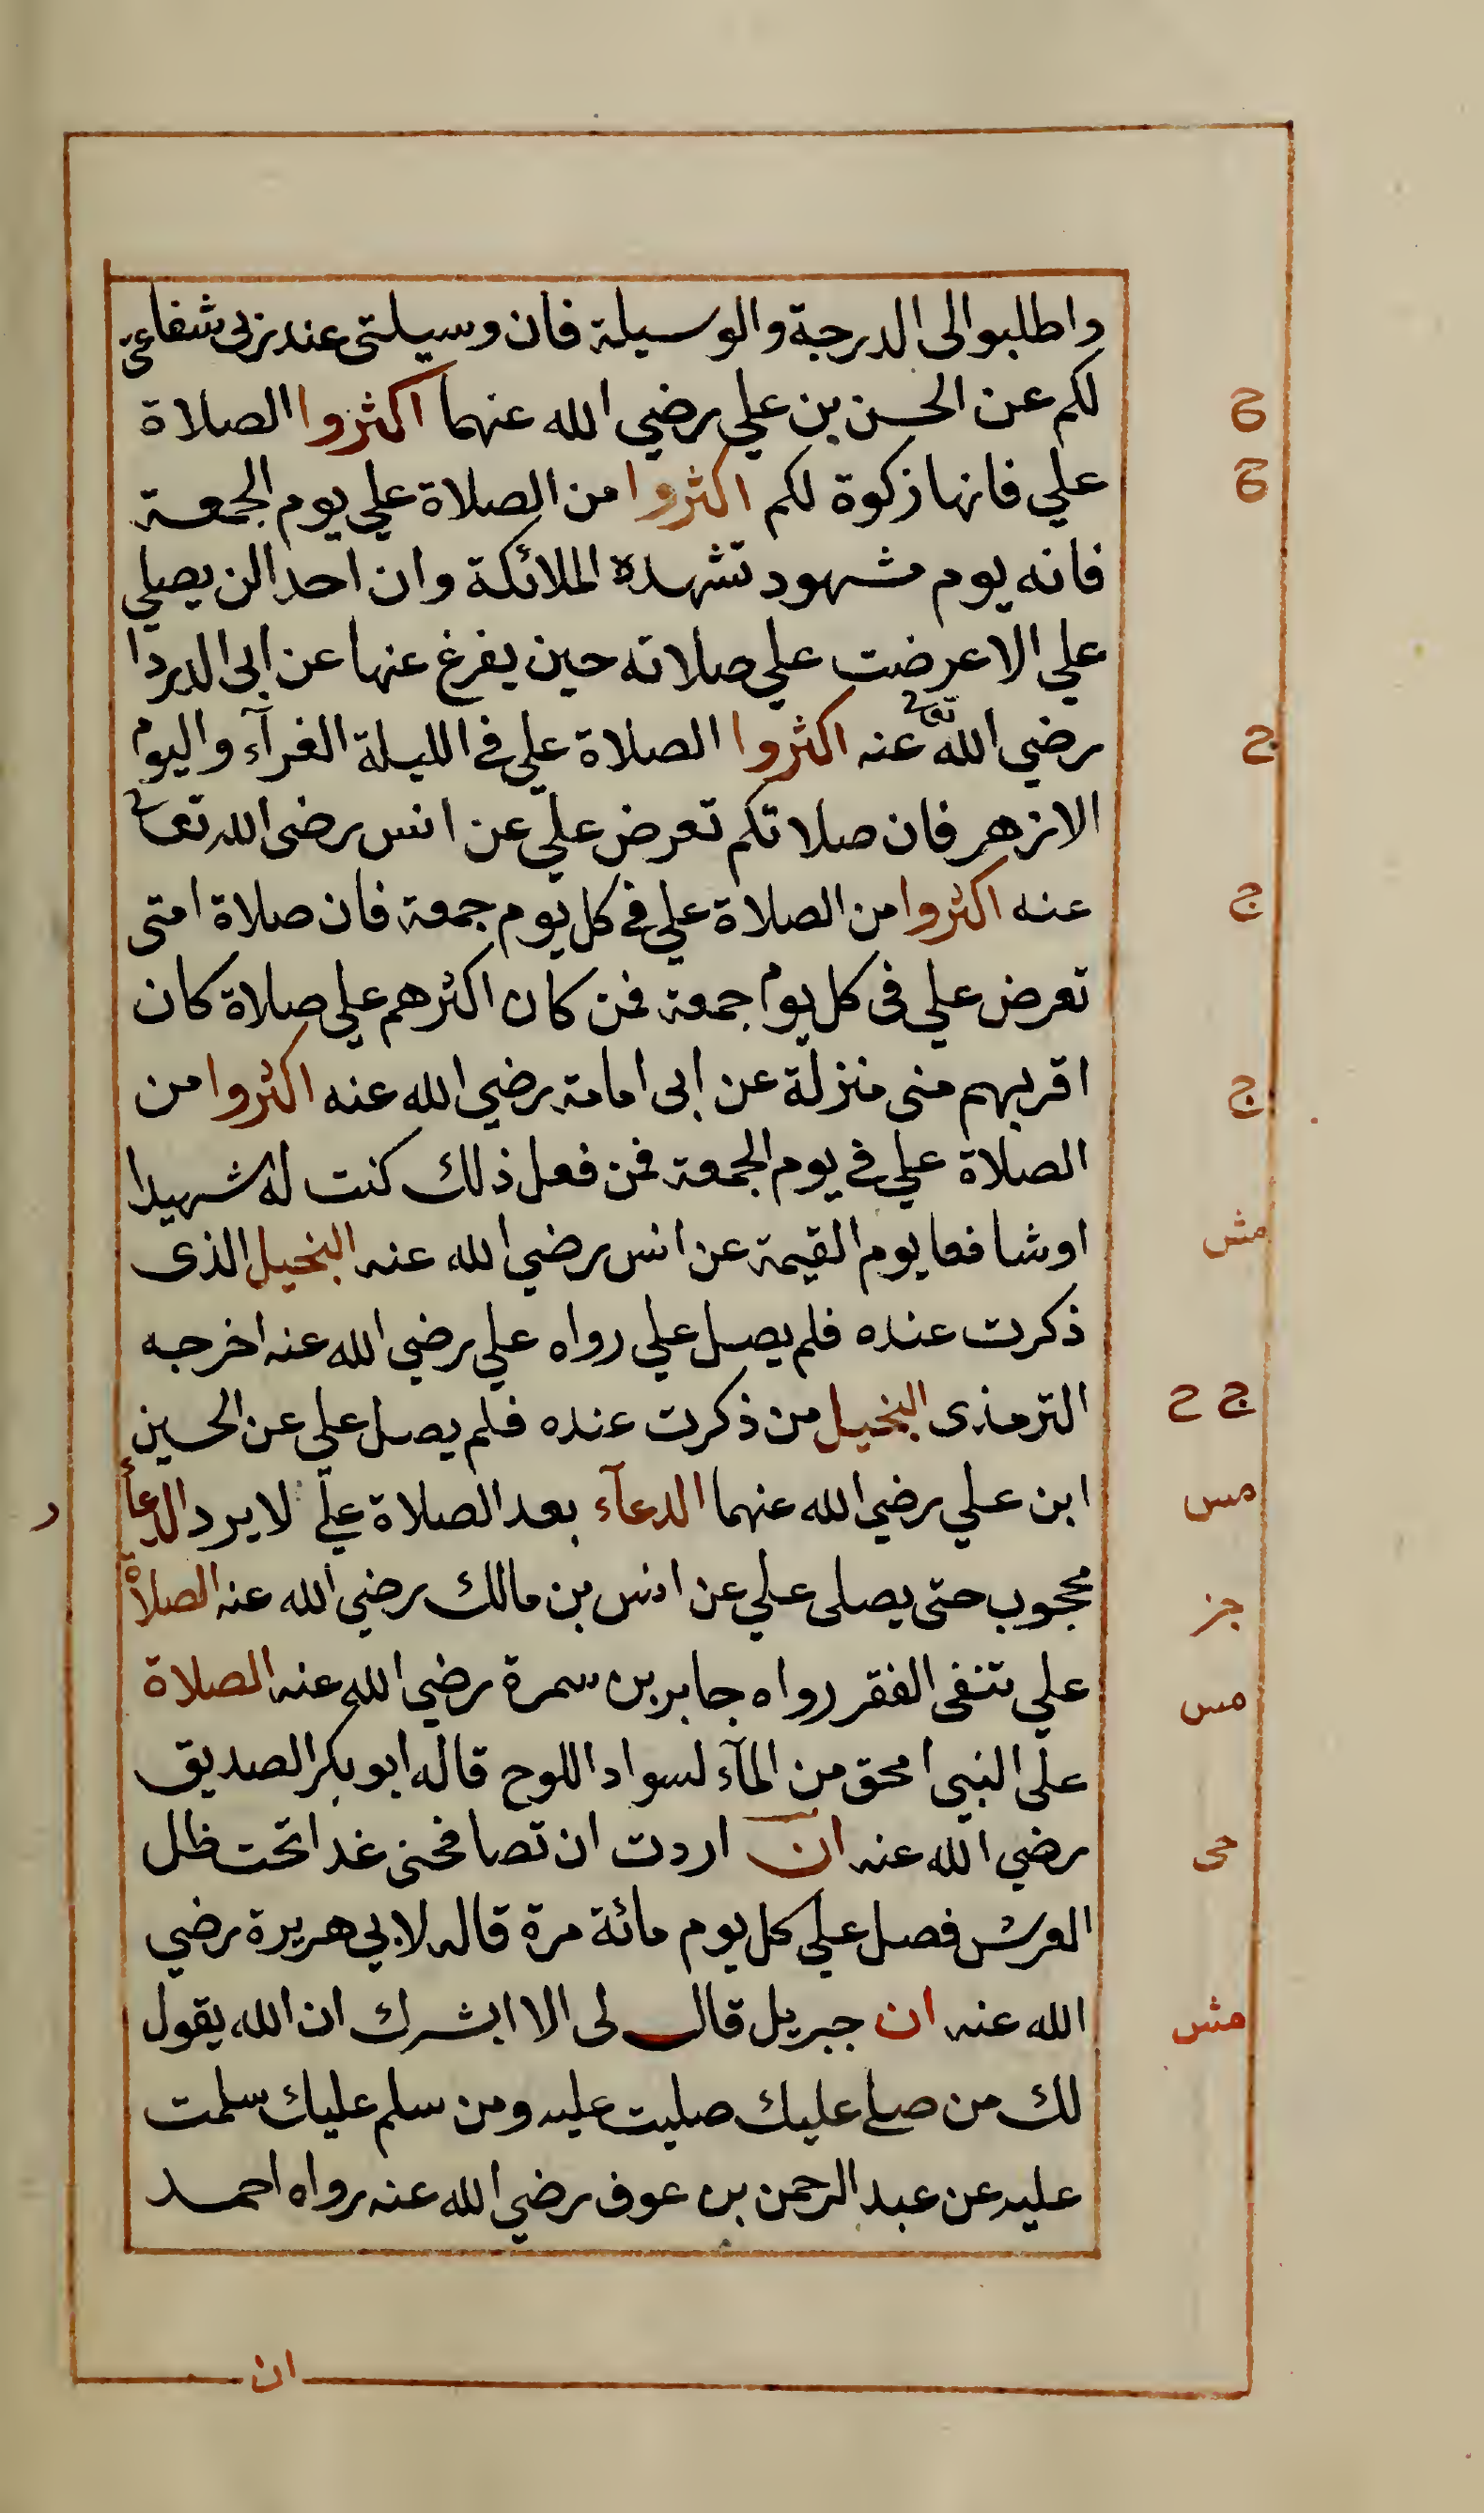 واطلبوا لى الدرجة والوسيلة فان وسيلتى عند ربى شفاعتى
لكم عن الحسن بن علي رضي الله عنهما اكثروا الصلاة
علي فانها زكوة لكم اكثروا من الصلاة علي يوم الجمعة
فانه يوم مشهود تشهده الملائكة وان احدا لن يصلي
علي الا عرضت علي صلاته حين يفرغ عنها عن ابى الدردا
رضي الله تعا عنه اكثروا الصلاة علي في الليلة الغرآء واليوم
الازهر فان صلاتكم تعرض علي عن انس رضى الله تعا
عنه اكثروا من الصلاة علي في كل يوم جمعة فان صلاة امتى
تعرض علي فى كل يوم جمعة فمن كان اكثرهم علي صلاة كان
اقربهم منى منزلة عن ابى امامة رضي الله عنه اكثروا من
الصلاة علي في يوم الجمعة فمن فعل ذلك كنت له شهيدا
اوشافعا يوم القيمة عن انس رضي الله عنه البخيل الذى
ذكرت عنده فلم يصل علي رواه علي رضي الله عنه اخرجه
الترمذى البخيل من ذكرت عنده فلم يصل علي عن الحسين
ابن علي رضي الله عنهما الدعآء بعد الصلاة علي لا يرد الدعأ
محجوب حتى يصلى علي عن انس بن مالك رضي الله عنه الصلاة
علي تنفى الفقر رواه جابر بن سمرة رضي الله عنه الصلاة
على النبي امحق من المآء لسواد اللوح قاله ابو بكر الصديق
رضي الله عنه ان اردت ان تصافحنى غدا تحت ظل
العرش فصل علي كل يوم مائة مرة قاله لابي هريرة رضي
الله عنه ان جبريل قال لى الا ابشرك ان الله يقول
لك من صلى عليك صليت عليه ومن سلم عليك سلمت
عليه عن عبد الرحمن بن عوف رضي الله عنه رواه احمد
ان
ج
ج
ج
مش
ج ح
مس
ر
جز
مس
حى
مش